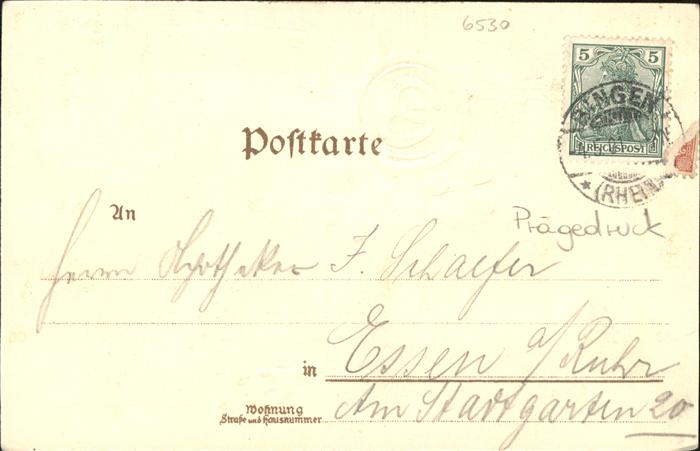 6530
5 5
BINGEN
REICHSPOST
* (RHEIN)
Postkarte
Prägedruck
An
Herrn Apotheker F. Schaefer
in Essen a/Ruhr
Wohnung
Straße und Hausnummer
Am Stadtgarten 20